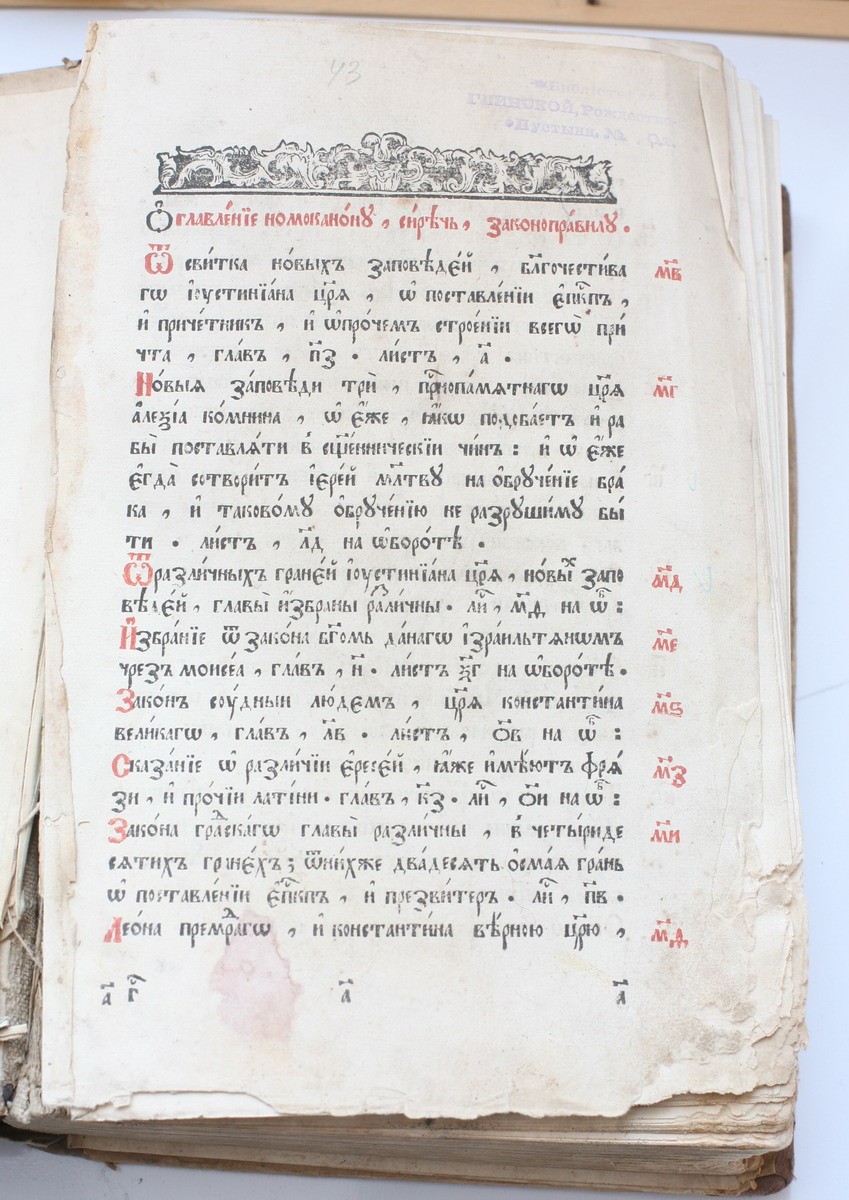 43
ГЛИНСКОЙ, Рождество-
Пустыни. №
Ѻ҆главле́нїе номокано́нꙋ , си́рѣчь , законопра́вилꙋ .
Ѿ сви́тка но́выхъ за́повѣде́й , бл҃гочести́ва мв҃
гѡ і҆ꙋстинїа́на цр҃ѧ̀ , ѡ҆ поставле́нїи є҆пкⷭ҇пъ ,
и҆ приче́тникъ , и҆ ѡ҆про́чемъ строе́нїи всегѡ̀ при́
чта , гла́въ , п҃з . ли́стъ , а҃ .
Но́выѧ за́повѣди трѝ , прⷭ҇нопа́мѧтнагѡ цр҃ѧ̀ мг҃
а҆леѯі́а ко́мнина , ѡ҆ є҆́же , ꙗ҆́кѡ подоба́етъ и҆ ра
бы̀ поставлѧ́ти в̾ сщ҃е́нническїи чи́нъ : и҆ ѡ҆ є҆́же
є҆гда̀ сотвори́тъ і҆ере́й мл҃твꙋ на ѻ҆брꙋче́нїе бра́
ка , и҆ таково́мꙋ ѻ҆брꙋче́нїю не разрꙋши́мꙋ бы́
ти . ли́стъ , л҃д на ѡ҆боро́тѣ .
Ѿразли́чныхъ гране́й і҆ꙋстинїа́на цр҃ѧ̀ , но́выⷯ запо мд҃
вѣде́й , главы̀ и҆збраны раⷥли́чны . лиⷭ҇ , м҃д на ѡ҆ⷠ :
И҆збра́нїе ѿ зако́на бг҃омъ да́нагѡ і҆зраильтѧнѡмъ ме҃
чрезъ моисе́а , гла́въ , н҃ . ли́стъ ѯ҃г на ѡ҆боро́тѣ .
Зако́нъ соу́дныи лю́демъ , цр҃ѧ̀ константи́на мѕ҃
вели́кагѡ , гла́въ , л҃в . ли́стъ , ѻ҃в на ѡ҆ⷠ :
Сказа́нїе ѡ҆ разли́чїи є҆ресе́й , ꙗ҆́же и҆мѣ́ютъ фрѧ́ мз҃
зи , и҆ про́чїи лати́ни . гла́въ , к҃з . лиⷭ҇ , ѻ҃и на ѡ҆ⷠ :
Зако́на граⷣскагѡ главы̀ разли́чны , в̾ четы́риде ми҃
сѧтихъ гране́хъ ; ѿни́хже два́десѧть ѻ҆сма́ѧ гра́нь
ѡ҆ поставле́нїи є҆пкⷭ҇пъ , и҆ презви́теръ . лиⷭ҇ , п҃в .
Лео́на премⷣрагѡ , и҆ константи́на вѣ́рною цр҃ю , мѳ҃
а҃ г҃ а҃ а҃